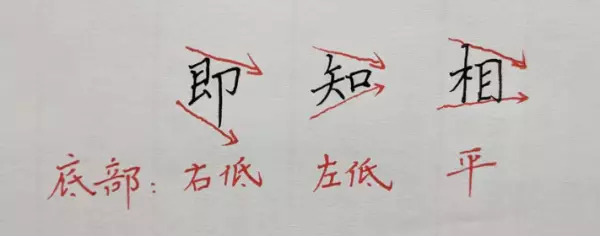 即 知 相
底部：右低 左低 平